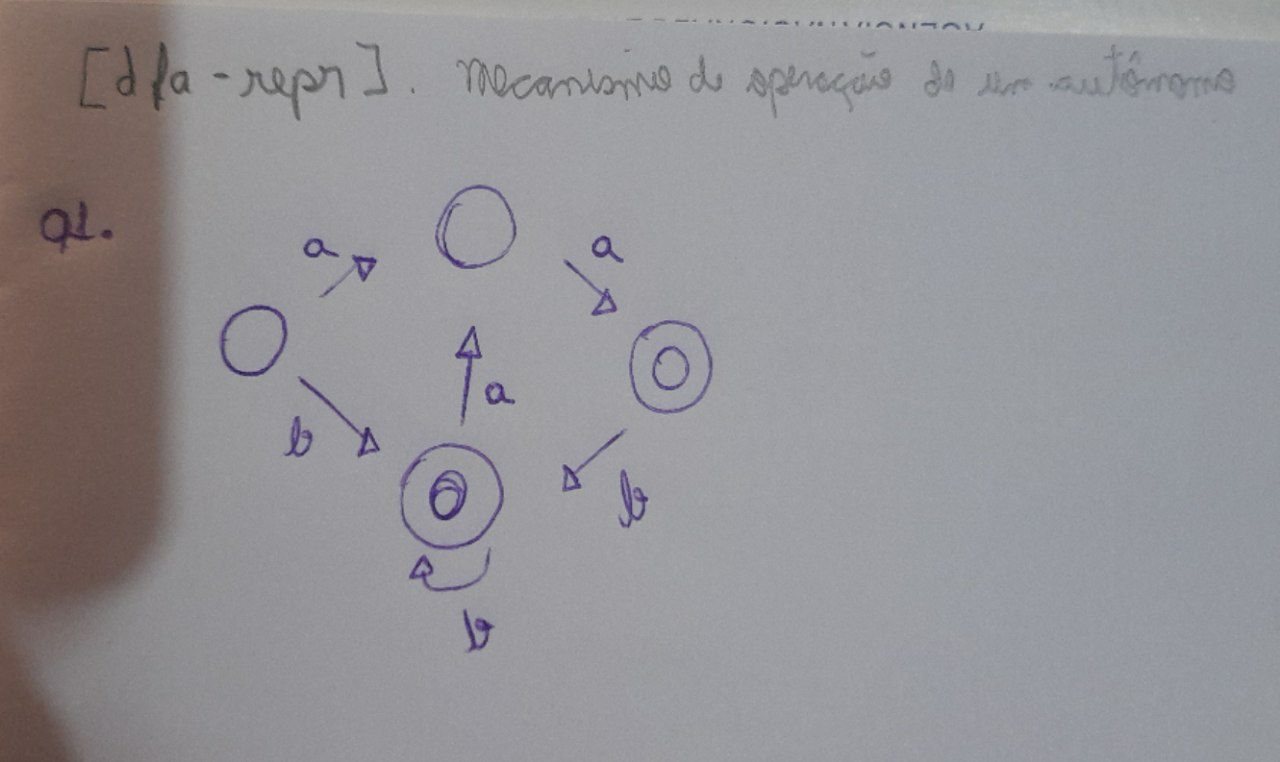 [dfa-repr]. Mecanismo de operação de um autômomo
Q1.
a
a
a
b
b
b